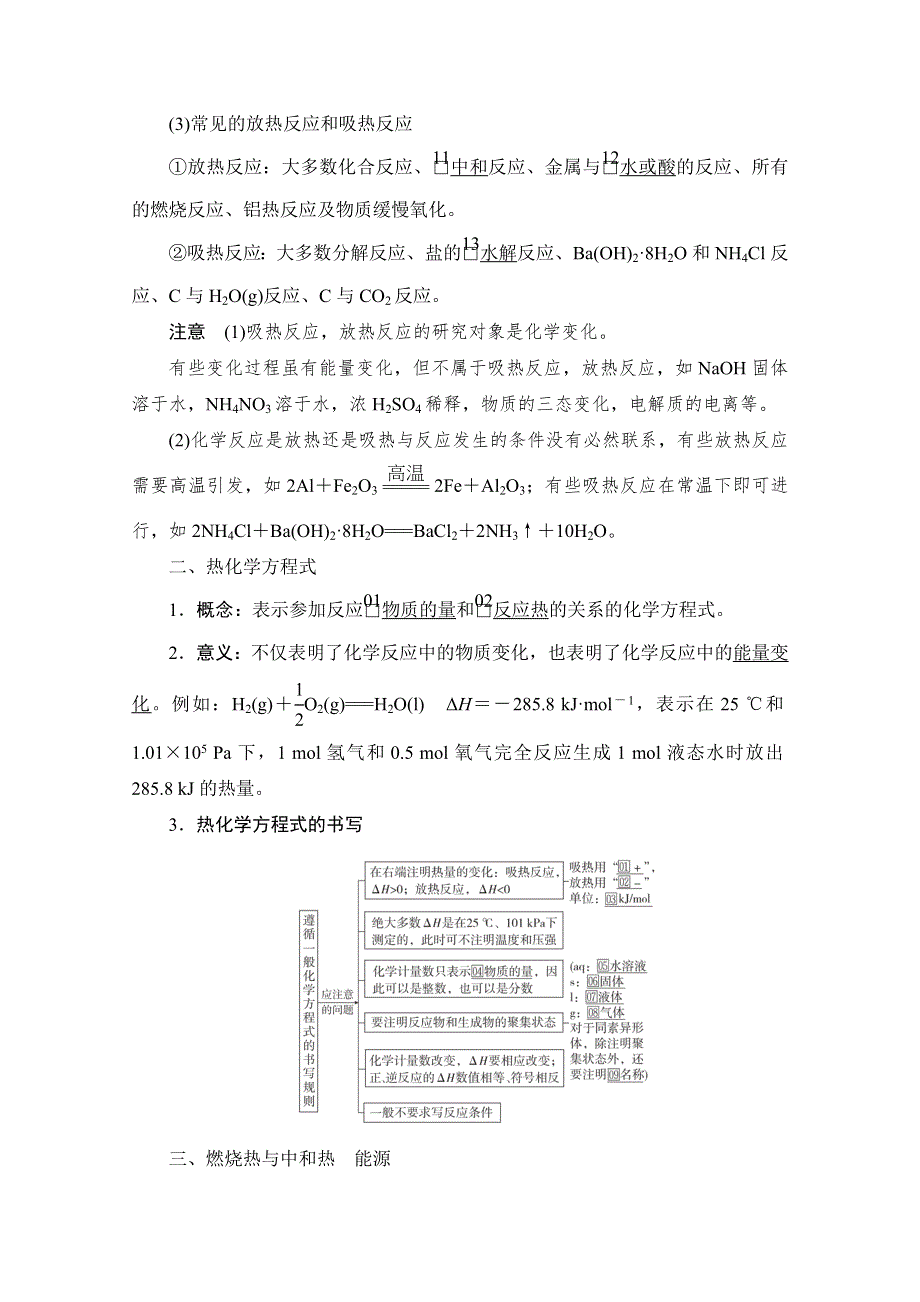 (3)常见的放热反应和吸热反应
①放热反应：大多数化合反应、11□中和反应、金属与12□水或酸的反应、所有
的燃烧反应、铝热反应及物质缓慢氧化。
②吸热反应：大多数分解反应、盐的13□水解反应、Ba(OH)₂·8H₂O 和 NH₄Cl 反
应、C 与 H₂O(g)反应、C 与 CO₂ 反应。
注意　(1)吸热反应，放热反应的研究对象是化学变化。
有些变化过程虽有能量变化，但不属于吸热反应，放热反应，如 NaOH 固体
溶于水，NH₄NO₃ 溶于水，浓 H₂SO₄ 稀释，物质的三态变化，电解质的电离等。
(2)化学反应是放热还是吸热与反应发生的条件没有必然联系，有些放热反应
需要高温引发，如 2Al＋Fe₂O₃ ==高温== 2Fe＋Al₂O₃；有些吸热反应在常温下即可进
行，如 2NH₄Cl＋Ba(OH)₂·8H₂O===BaCl₂＋2NH₃↑＋10H₂O。
二、热化学方程式
1．概念：表示参加反应01□物质的量和02□反应热的关系的化学方程式。
2．意义：不仅表明了化学反应中的物质变化，也表明了化学反应中的能量变
化。例如：H₂(g)＋1/2O₂(g)===H₂O(l)　ΔH＝－285.8 kJ·mol⁻¹，表示在 25 ℃和
1.01×10⁵ Pa 下，1 mol 氢气和 0.5 mol 氧气完全反应生成 1 mol 液态水时放出
285.8 kJ 的热量。
3．热化学方程式的书写
遵循一般化学方程式的书写规则
应注意
的问题
在右端注明热量的变化：吸热反应，
ΔH>0；放热反应，ΔH<0
吸热用“01＋”，
放热用“02－”
单位：03kJ/mol
绝大多数ΔH是在25 ℃、101 kPa下
测定的，此时可不注明温度和压强
化学计量数只表示04物质的量，因
此可以是整数，也可以是分数
要注明反应物和生成物的聚集状态
(aq：05水溶液
s：06固体
l：07液体
g：08气体
对于同素异形
体，除注明聚
集状态外，还
要注明09名称)
化学计量数改变，ΔH要相应改变；
正、逆反应的ΔH数值相等、符号相反
一般不要求写反应条件
三、燃烧热与中和热　能源